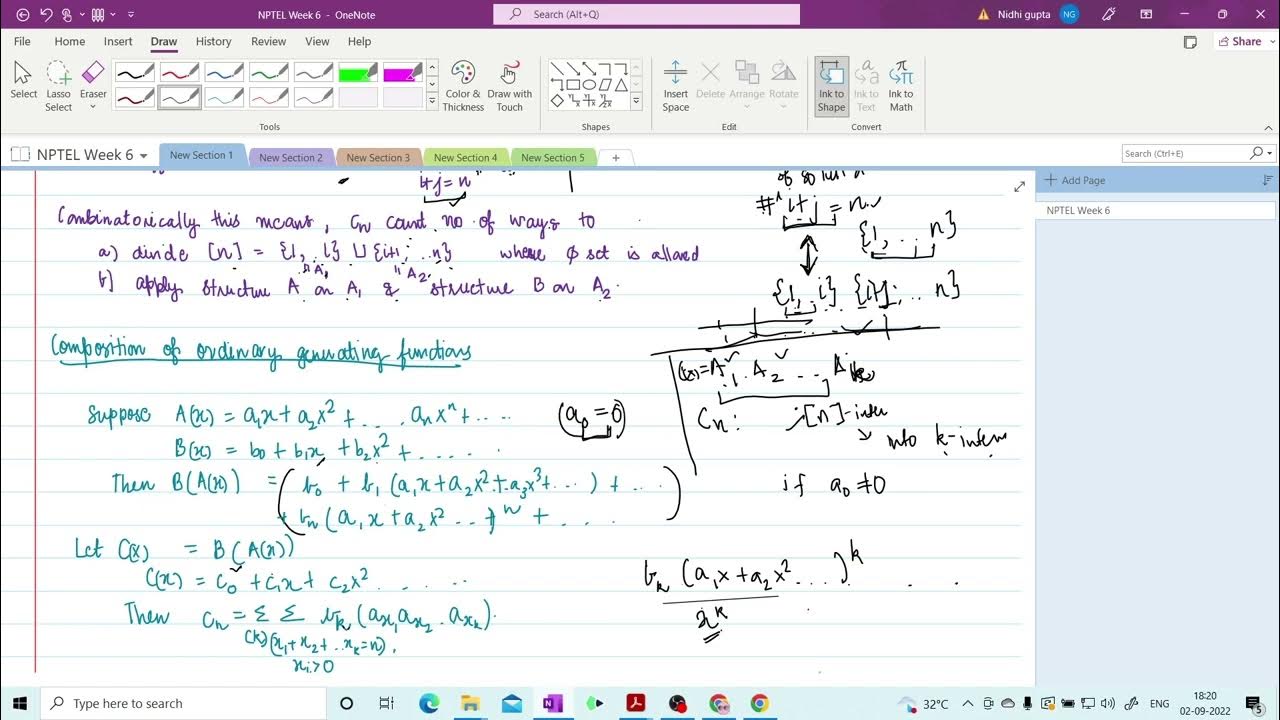 NPTEL Week 6 - OneNote
Search (Alt+Q)
Nidhi gupta
NG
File Home Insert Draw History Review View Help
Share
Select
Lasso Select
Eraser
Color & Thickness
Draw with Touch
Insert Space
Delete
Arrange
Rotate
Ink to Shape
Ink to Text
Ink to Math
Tools
Shapes
Edit
Convert
NPTEL Week 6
New Section 1
New Section 2
New Section 3
New Section 4
New Section 5
Search (Ctrl+E)
Add Page
NPTEL Week 6
i+j=n
Combinatorically this means, Cn count no of ways to
a) divide [n] = {1, i} ⊔ {i+1, ..n} where φ set is allowed
"A1 "A2
b) apply structure A on A1 & structure B on A2.
# i+j = n
{1, .., n}
{1, i} {i+1, .. n}
Composition of ordinary generating functions
Suppose A(x) = a1x + a2x² + .... anxⁿ + ....
(a0 = 0)
B(x) = b0 + b1x + b2x² + ....
Then B(A(x)) = ( b0 + b1 (a1x + a2x² + a3x³ + ...) + ...
+ bn (a1x + a2x² ...)ⁿ + .... )
Let C(x) = B(A(x))
C(x) = c0 + c1x + c2x² ....
Then cn = Σ Σ bk (ax1 ax2 . axk).
(k) (x1+x2+..xk=n).
xi>0
A1. A2 ...
Cn: [n]-inter
into k-interv
if a0 ≠ 0
bk (a1x + a2x² ....)ᵏ
xᵏ
Type here to search
32°C
ENG
18:20
02-09-2022
5